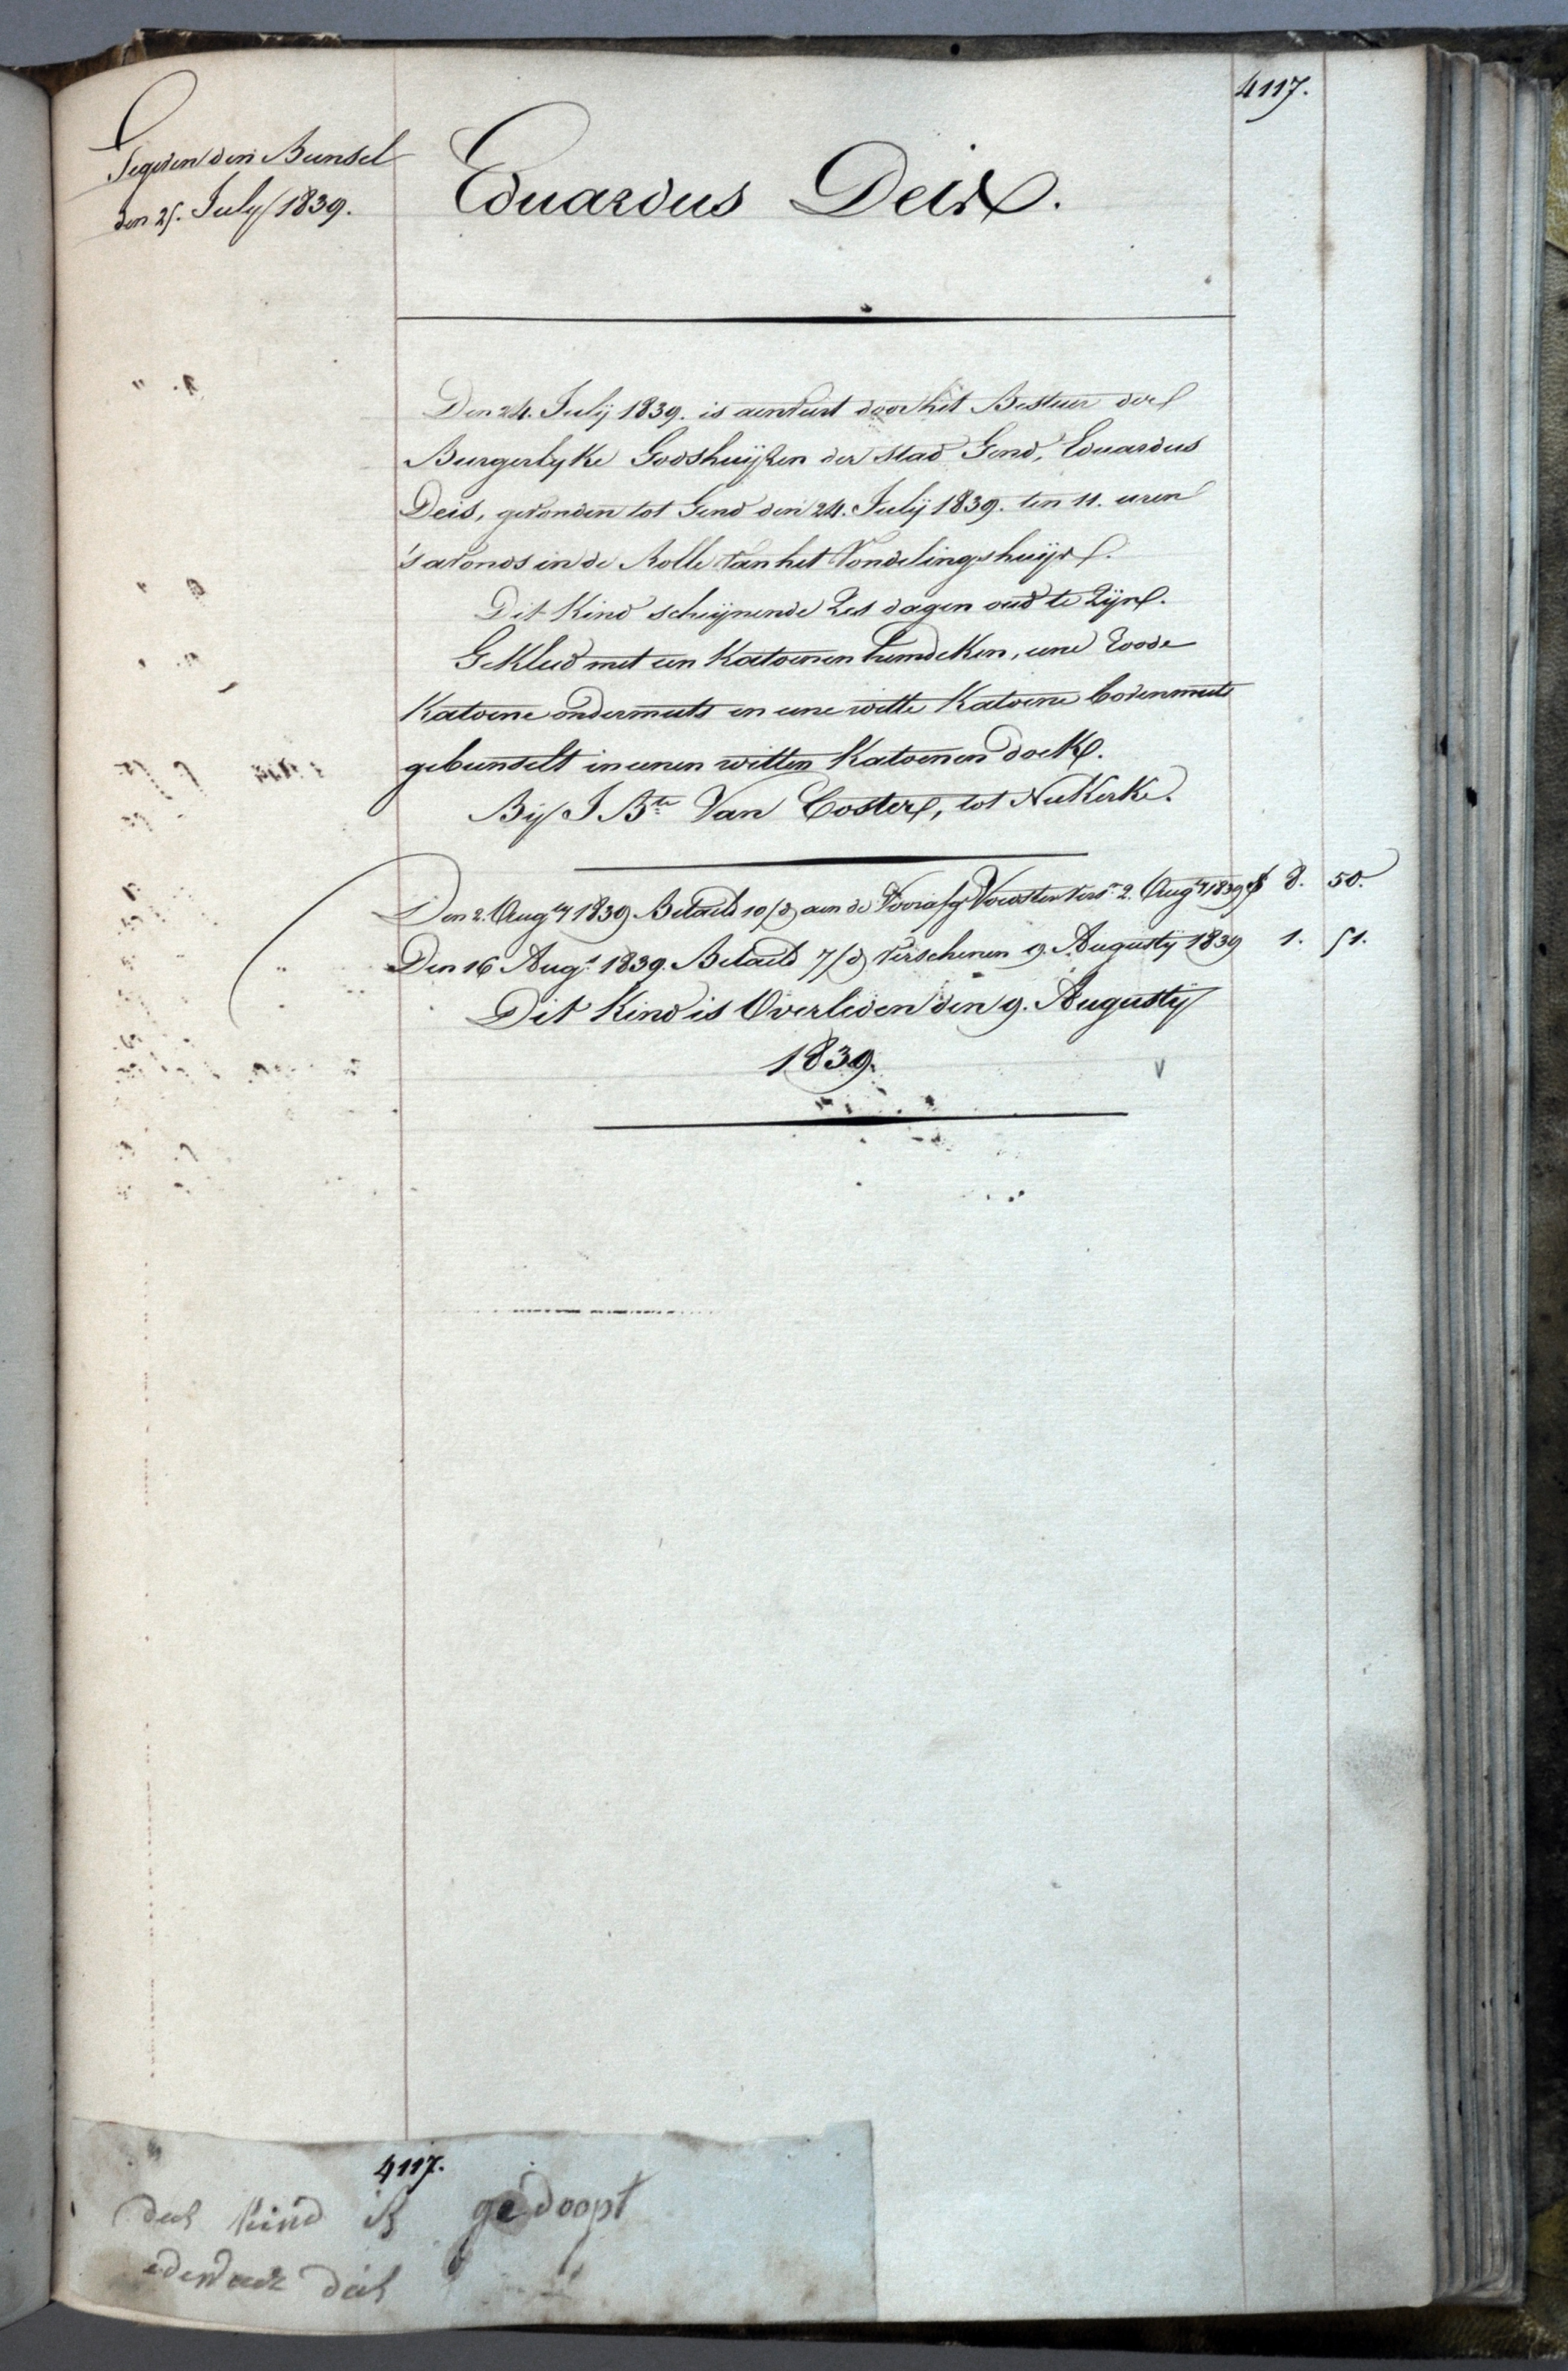 4117.
Gegeven den Bunsel
den 25. July 1839.
Eduardus Deis.
Den 24. Julij 1839. is aenveirt door het Bestuer der
Burgerlyke Godshuijzen der stad Gend, Eduardus
Deis, gevonden tot Gend den 24. Julij 1839. ten 11. uren
's avonds in de Rolle van het Vondelingshuijs.
Dit Kind schijnende zes dagen oud te zijn.
Gekleed met een Katoenen hemdeken, eene roode
Katoene ondermuts en eene witte Katoene bovenmuts
gebunselt in eenen witten Katoenen doek.
Bij J. Bte Van Coster, tot NuKerke.
Den 2. Augty 1839. Betaeld 10/d aen de Voorafg Voedster Vers. 2. Augty 1839 8. 50.
Den 16 Augt 1839. Betaeld 7/d Verschenen 9. Augustij 1839 1. 51.
Dit Kind is Overleden den 9. Augustij
1839.
4117.
kind is gedoopt